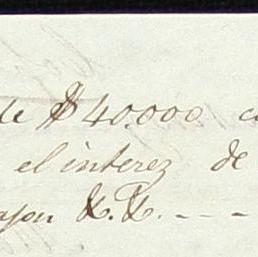 de $40.000 c
el interez de
&. &. - - -